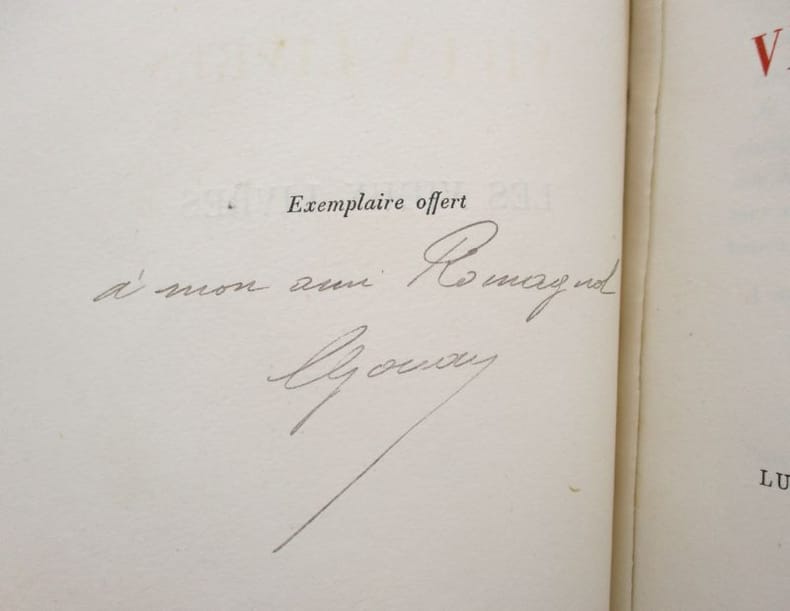 Exemplaire offert
à mon ami Romagnol
V
LU